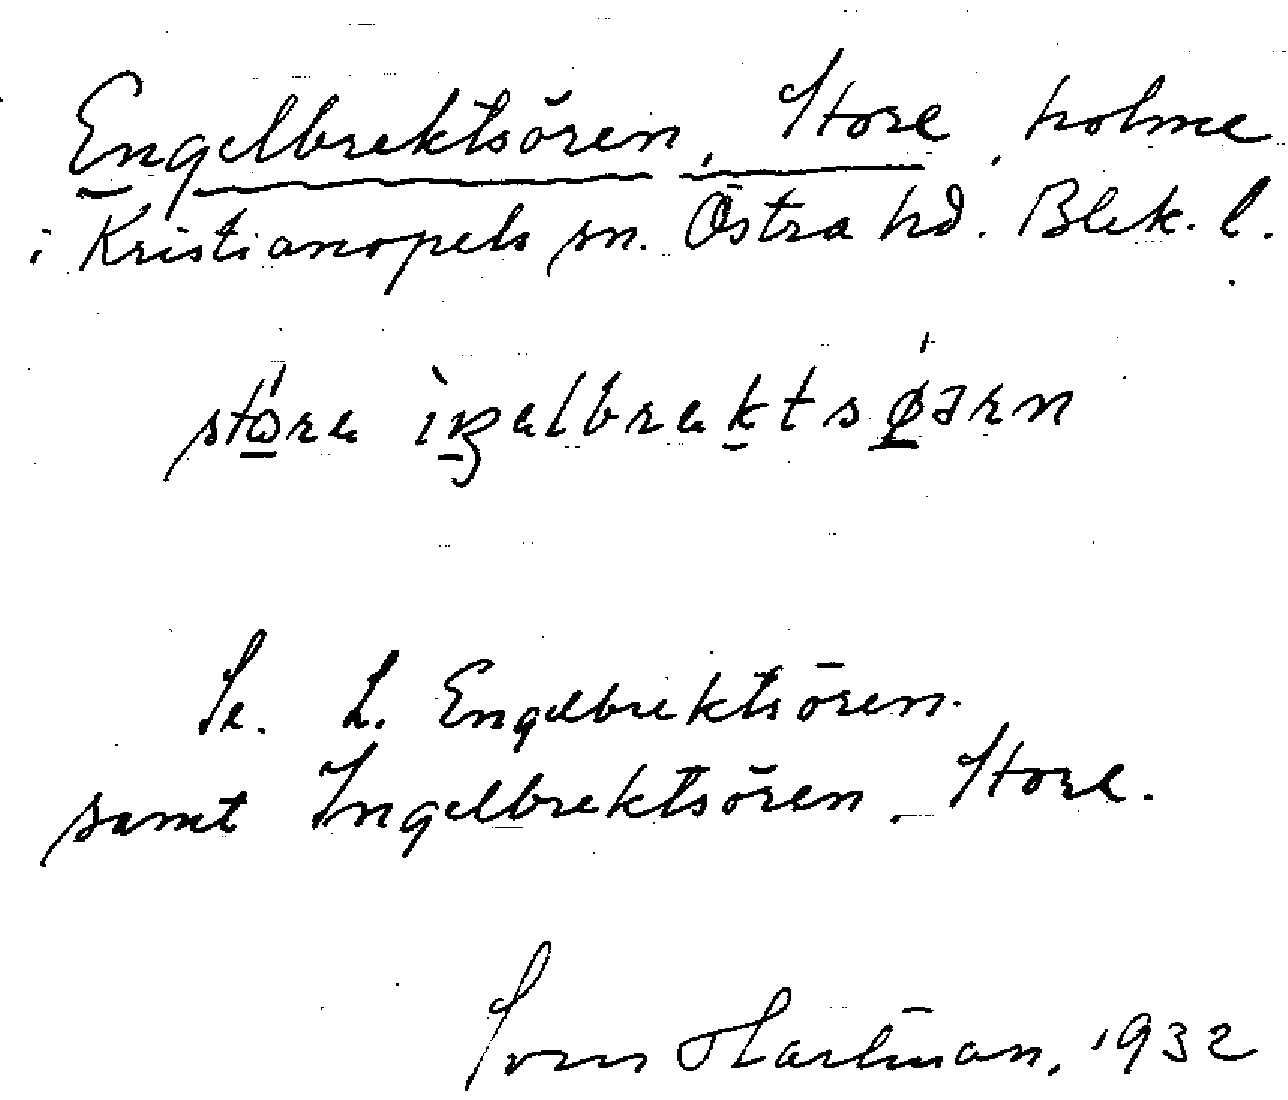 Engelbrektsören, Store, holme
i Kristianopels sn. Östra hd. Blek. l.
store iŋelbrektsøərn
Se L. Engelbrektsören.
samt Ingelbrektsören, Store.
Sven Hartman, 1932